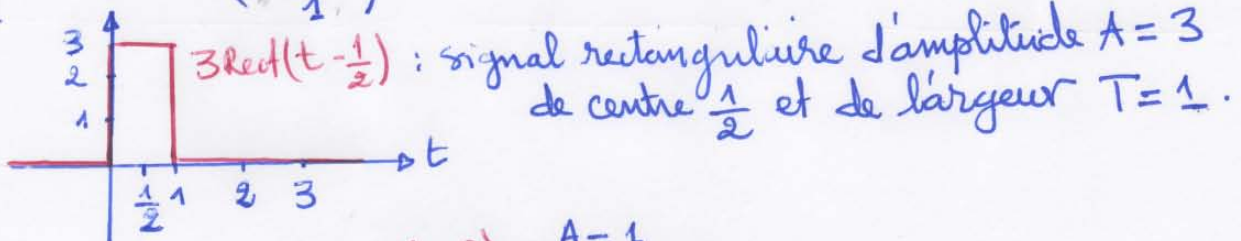 1
3
3Rect(t - 1/2) : signal rectangulaire d'amplitude A = 3
2
de centre 1/2 et de largeur T = 1.
1
t
1/2 1 2 3
A = 1